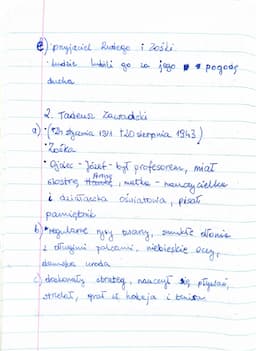 e) przyjaciel Rudego i Zośki
• ludzie lubili go za jego pogodę
ducha
2. Tadeusz Zawadzki
a) • (*24 stycznia 1921 †20 sierpnia 1943)
• Zośka
• Ojciec - Józef - był profesorem, miał
siostrę Annę, matka - nauczycielka
i działaczka oświatowa, pisał
pamiętnik
b) • regularne rysy twarzy, smukłe dłonie
z długimi palcami, niebieskie oczy,
damska uroda
c) doskonały strateg, nauczył się pływać,
strzelał, grał w hokeja i tenisa